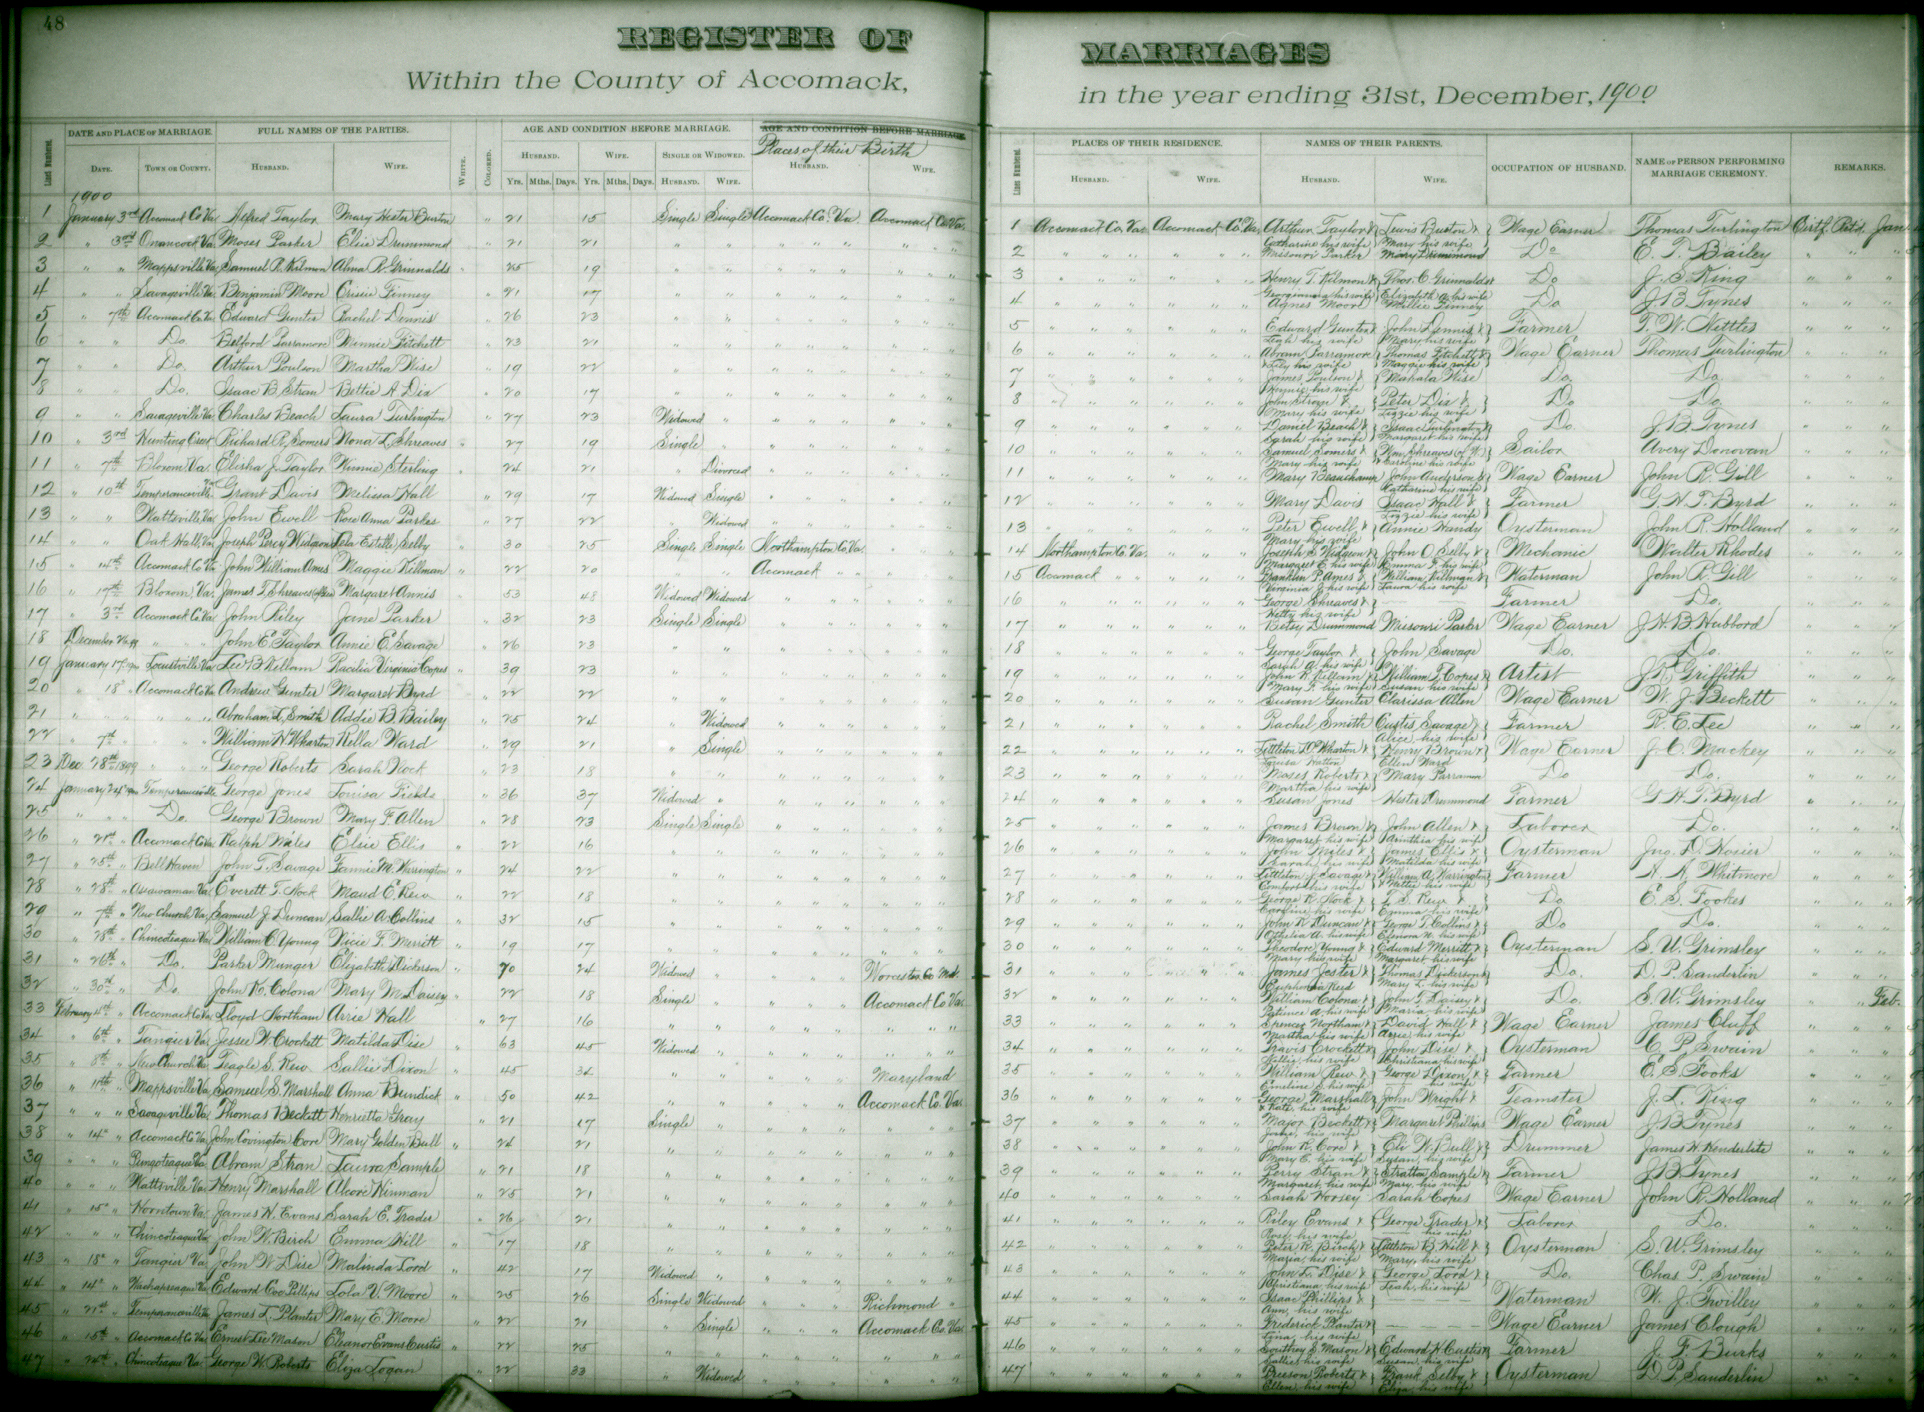 48
REGISTER OF MARRIAGES
Within the County of Accomack, in the year ending 31st, December, 1900
DATE AND PLACE OF MARRIAGE. FULL NAMES OF THE PARTIES. AGE AND CONDITION BEFORE MARRIAGE. AGE AND CONDITION BEFORE MARRIAGE
Places of their Birth
Lines Numbered. DATE. TOWN OR COUNTY. HUSBAND. WIFE. WHITE. COLORED. HUSBAND. WIFE. SINGLE OR WIDOWED. HUSBAND. WIFE.
Yrs. Mths. Days. Yrs. Mths. Days. HUSBAND. WIFE.
1900
1 January 3rd Accomack Co Va Alfred Taylor Mary Hester Burton " 21 15 Single Single Accomack Co. Va Accomack Co Va
2 " 3rd Onancock Va Moses Parker Elsie Drummond " 21 21 " "
3 " " Mappsville Va Samuel R. Kilmon Alma R. Grinnalds " 25 19 " "
4 " " Savageville Va Benjamin Moore Crisie Finney " 21 17 " "
5 " 7th Accomack Co Va Edward Gunter Rachel Dennis " 26 23 " "
6 " " Do. Bilford Parramore Minnie Fitchett " 23 21 " "
7 " " Do. Arthur Poulson Martha Wise " 19 22 " "
8 " " Do. Isaac B Stran Bettie A Dix " 20 17 " "
9 " " Savageville Va Charles Beach Laura Turlington " 27 23 Widowed "
10 " 3rd Hunting Creek Richard R. Somers Nona L. Shreaves " 27 19 Single "
11 " 7th Bloxom Va. Elisha J. Taylor Winnie Sterling " 24 21 " Divorced
12 " 10th Temperanceville Va Grant Davis Melissa Hall " 29 17 Widowed Single
13 " " Wattsville Va John Ewell Rose Anna Parks " 27 22 " Widowed
14 " " Oak Hall, Va Joseph Percy Widgeon Lela Estelle Selby " 30 25 Single Single Northampton Co. Va.
15 " 14th Accomack Co Va John William Ames Maggie Killman " 22 20 " " Accomack
16 " 17th Bloxom, Va. James T. Shreaves Margaret Annis " 53 48 Widowed Widowed
17 " 3rd Accomack Co Va John Riley Jane Parker " 32 23 Single Single
18 December John E. Taylor Annie E. Savage " 26 23 " "
19 January 17 Locustville Va Lee B Kellam Racilia Virginia Copes " 39 23 " "
20 " 18 " Accomack Co Va Andrew Gunter Margaret Byrd " 22 22 " "
21 " " " Abraham L. Smith Addie B. Bailey " 25 24 " Widowed
22 " 7th " William H Wharton Rilla Ward " 29 21 " Single
23 Dec 28th 1899 " George Roberts Sarah Nock " 23 18 " "
24 January 24 Temperanceville George Jones Louisa Fields " 36 37 Widowed "
25 " " Do. George Brown Mary F. Allen " 28 23 Single Single
26 " 21st " Accomack Co Va Ralph Miles Elsie Ellis " 22 16 " "
27 " 25th " Bell Haven John T. Savage Fannie M. Warrington " 24 22 " "
28 " 28th " Assawaman Va Everett T. Nock Maud E. Rew " 22 18 " "
29 " 7th " New Church Va Samuel J. Duncan Sallie A. Collins " 32 15 " "
30 " 28th " Chincoteague Va William C. Young Vicie F. Merritt " 19 17 " "
31 " 26th " Do. Parker Munger Elizabeth Dickerson " 70 24 Widowed " Worcester Co Md.
32 " 30th " Do. John K. Colona Mary M. Daisey " 22 18 Single " Accomack Co Va
33 February 4th Accomack Co Va Lloyd Northam Arrie Hall " 27 16 " "
34 " 6th " Tangier Va Jessee W. Crockett Matilda Dise " 63 45 Widowed "
35 " 8th " New Church Va Teagle S. Rew Sallie Dixon " 45 34 " " Maryland
36 " 11th " Mappsville Va Samuel S. Marshall Anna Bundick " 50 42 " " Accomack Co. Va
37 " " " Savageville Va Thomas Beckett Henrietta Gray " 21 17 Single "
38 " 14" " Accomack Co Va John Covington Core Mary Golden Bull " 24 21 " "
39 " " " Pungoteague Va Abram Stran Laura Sample " 21 18 " "
40 " " " Wattsville Va Henry Marshall Alcore Hinman " 25 21 " "
41 " 15" " Horntown Va. James H. Evans Sarah E. Trader " 26 21 " "
42 " " " Chincoteague Va John W. Birch Emma Hill " 17 18 " "
43 " 18" " Tangier Va John W Dise Malinda Lord " 42 17 Widowed "
44 " 14" " Wachapreague Va Edward Coo Phillips Lola V. Moore " 25 26 Single Widowed Richmond "
45 " 21st " Temperanceville Va James L. Planter Mary E. Moore " 22 21 " Single Accomack Co. Va
46 " 15th " Accomack Co Va Ernest Lee Mason Eleanor Evans Curtis " 22 25 " "
47 " 24th " Chincoteague Va George W. Roberts Eliza Logan " 22 33 " Widowed
Lines Numbered. PLACES OF THEIR RESIDENCE. NAMES OF THEIR PARENTS. OCCUPATION OF HUSBAND. NAME OF PERSON PERFORMING MARRIAGE CEREMONY. REMARKS.
HUSBAND. WIFE. HUSBAND. WIFE.
1 Accomack Co. Va Accomack Co. Va Arthur Taylor & Catharine his wife Lewis Burton & Mary his wife Wage Earner Thomas Turlington Certf. Retd. Jan
2 Missouri Parker Mary Drummond Do E. T. Bailey
3 Henry T. Kilmon & Georgianna his wife Thos. C. Grinnalds & Elizabeth A. his wife Do J. S. King
4 Agnes Moore Millie Finney Do. J B Tynes
5 Edward Gunter & Leah his wife John Dennis & Mary his wife Farmer T. W. Nettles
6 Abram Parramore & Lity his wife Thomas Fitchett & Maggie his wife Wage Earner Thomas Turlington
7 James Poulson & his wife Mahala Wise Do. Do.
8 John Stran & Mary his wife Peter Dix & Lizzie his wife Do Do.
9 Daniel Beach & Sarah his wife Isaac Turlington & Margaret his wife Do. J. B. Tynes
10 Samuel Somers & Mary his wife Wm Shreaves of W. & Caroline his wife Sailor Avery Donovan
11 Mary Beauchamp John Anderson & Catharine his wife Wage Earner John R. Gill
12 Mary Davis Isaac Hall & Lizzie his wife Farmer G. H. T. Byrd
13 Peter Ewell & Mary his wife Annie Handy Oysterman John R. Holland
14 Northampton Co. Va. Joseph S. Widgeon & Margaret E. his wife John O. Selby & Emma F. his wife Mechanic Walter Rhodes
15 Accomack Franklin P. Ames & Virginia J. his wife William Killman & Laura his wife Waterman John R. Gill
16 George Shreaves & Hetty his wife Farmer Do.
17 Betsy Drummond Missouri Parker Wage Earner J. H. B. Hubbord
18 George Taylor & Sarah A. his wife John Savage Do. Do.
19 John W. Kellam & Mary F. his wife William T. Copes & Susan his wife Artist J. R. Griffith
20 Susan Gunter Clarissa Allen Wage Earner W. J. Beckett
21 Rachel Smith Custis Savage & Alice his wife Farmer R. E. Lee
22 Littleton D. Wharton & Louisa Watton Henry Brown & Ellen Ward Wage Earner J. C. Mackey
23 Moses Roberts & Martha his wife Mary Parramore Do Do.
24 Susan Jones Hester Drummond Farmer G H. T. Byrd
25 James Brown & Margaret his wife John Allen & Arinthia his wife Laborer Do.
26 John Miles & Sarah his wife James Ellis & Matilda his wife Oysterman Jno. D. Hosier
27 Littleton J. Savage & Comfort his wife William A. Warrington & Nettie his wife Farmer A. A. Whitmore
28 George R. Nock & Caroline his wife T. S. Rew & Emma his wife Do E. S. Fookes
29 John K. Duncan & his wife George T. Collins & Elenora N. his wife Do Do.
30 Theodore Young & Mary his wife Edward Merritt & Margaret his wife Oysterman S. W. Grimsley
31 James Jester & Euphemia Reed Thomas Dickerson & Mary L. his wife Do. D. P. Sanderlin
32 William Colona & Patience A. his wife John T. Daisey & Maria his wife Do. S. W. Grimsley Feb.
33 Spencer Northam & Martha his wife David Hall & Arrie his wife Wage Earner James Cluff
34 Travis Crockett & his wife John Dise & Christiana his wife Oysterman C. P. Swain
35 William Rew & Emeline S. his wife George Dixon & his wife Farmer E. S. Fooks
36 George Marshall & Kate his wife John Wright & Teamster J. L. King
37 Major Beckett & his wife Margaret Phillips Wage Earner J B Tynes
38 John R. Core & Mary E. his wife Eli W. Bull & Susan his wife Drummer James W. Henderlite
39 Perry Stran & Margaret his wife Stratton Sample & Mary his wife Farmer J B Tynes
40 Sarah Horsey Sarah Copes Wage Earner John R. Holland
41 Riley Evans & Rose his wife George Trader & his wife Laborer Do.
42 Peter R. Birch & Maria his wife Littleton B. Hill & Mary his wife Oysterman S. W. Grimsley
43 John L. Dise & Christiana his wife George Lord & Leah his wife Do. Chas P. Swain
44 Isaac Phillips & Ann, his wife Waterman W. J. Twilley
45 Frederick Planter & Lina his wife Wage Earner James Clough
46 Southey S. Mason & Sallie his wife Edward H. Custis & Susan his wife Farmer J. F. Burks
47 Preeson Roberts & Ellen his wife Frank Selby & Eliza his wife Oysterman D P. Sanderlin